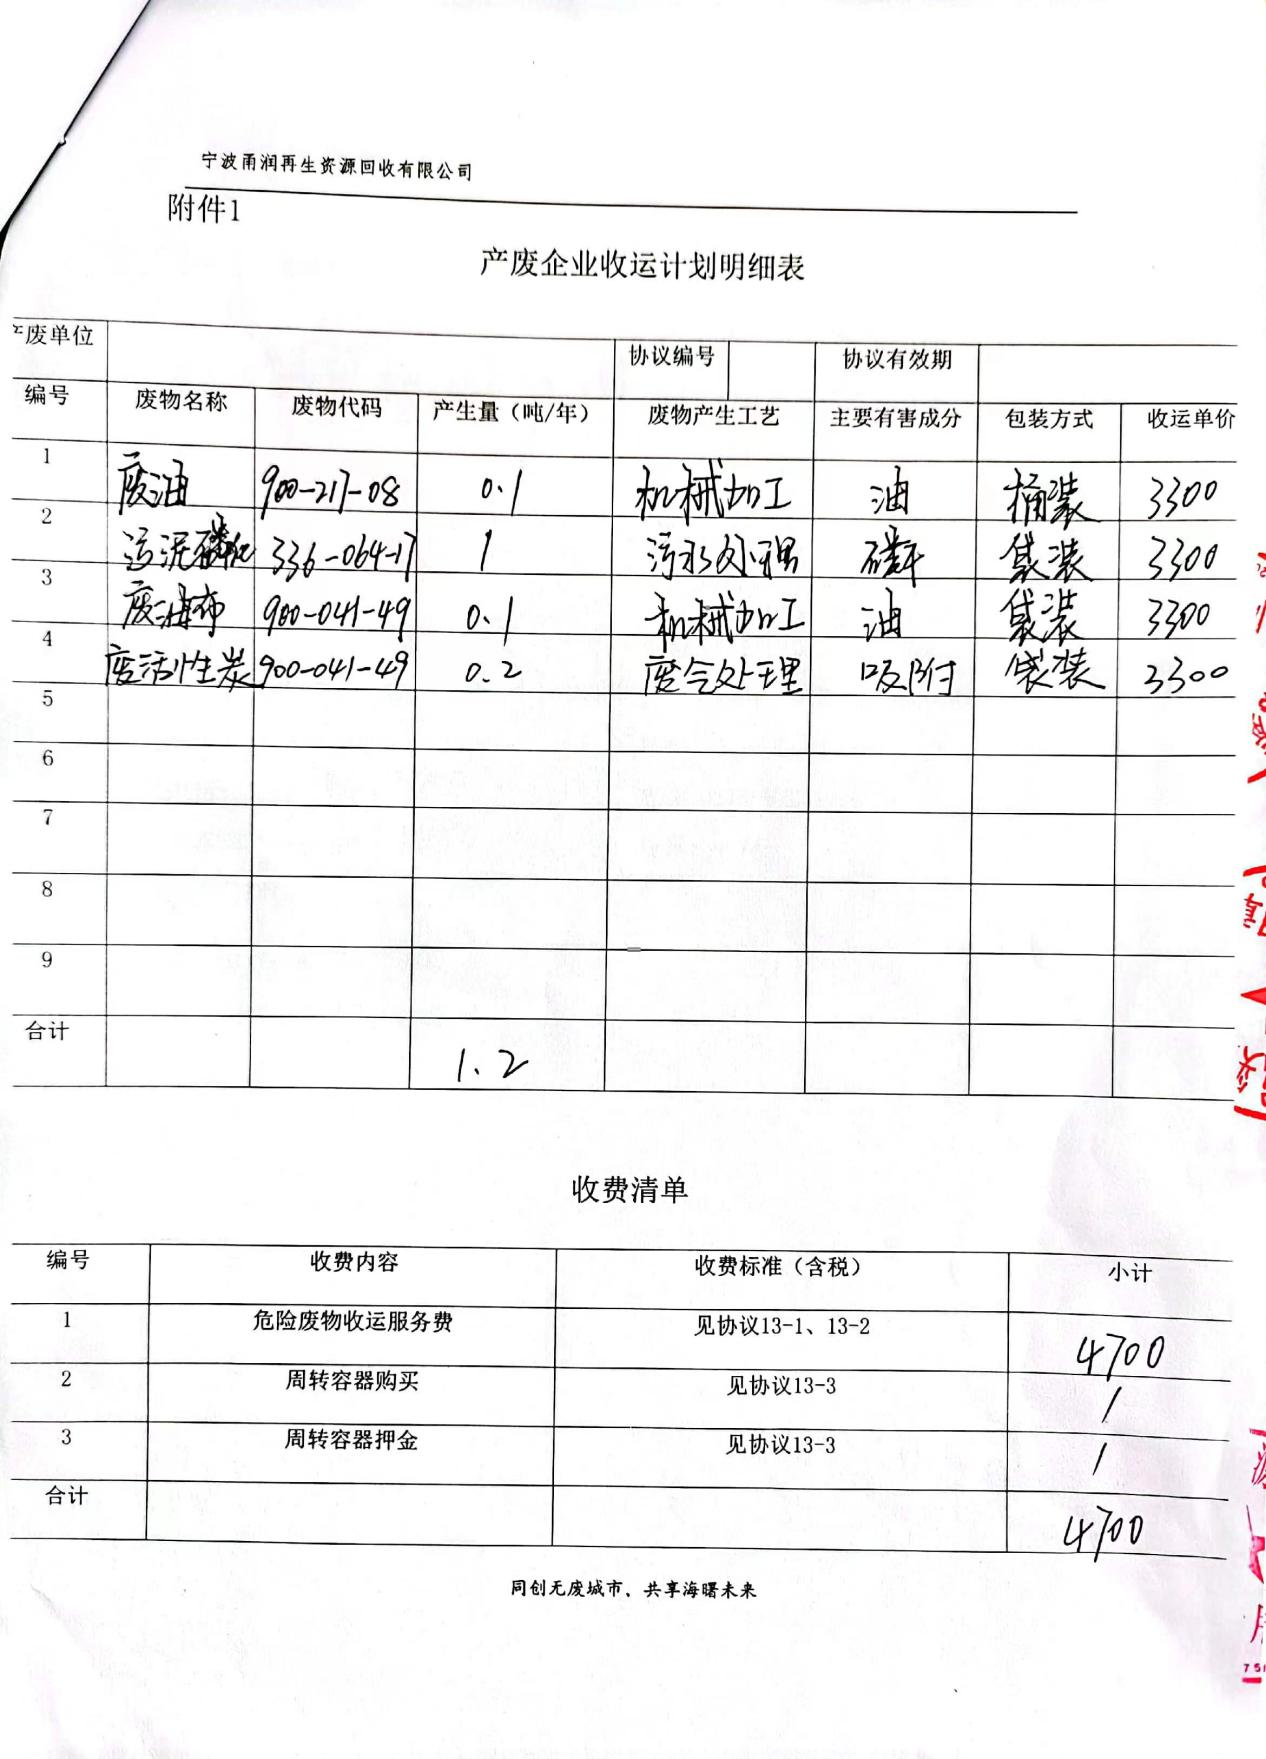 宁波甬润再生资源回收有限公司
附件1
产废企业收运计划明细表
产废单位 协议编号 协议有效期
编号 废物名称 废物代码 产生量（吨/年） 废物产生工艺 主要有害成分 包装方式 收运单价
1 废油 900-217-08 0.1 机械加工 油 桶装 3300
2 污泥磷化 336-064-17 1 污水处理 磷 袋装 3300
3 废油布 900-041-49 0.1 机械加工 油 袋装 3300
4 废活性炭 900-041-49 0.2 废气处理 吸附 袋装 3300
5
6
7
8
9
合计 1.2
收费清单
编号 收费内容 收费标准（含税） 小计
1 危险废物收运服务费 见协议13-1、13-2 4700
2 周转容器购买 见协议13-3 /
3 周转容器押金 见协议13-3 /
合计 4700
同创无废城市、共享海曙未来